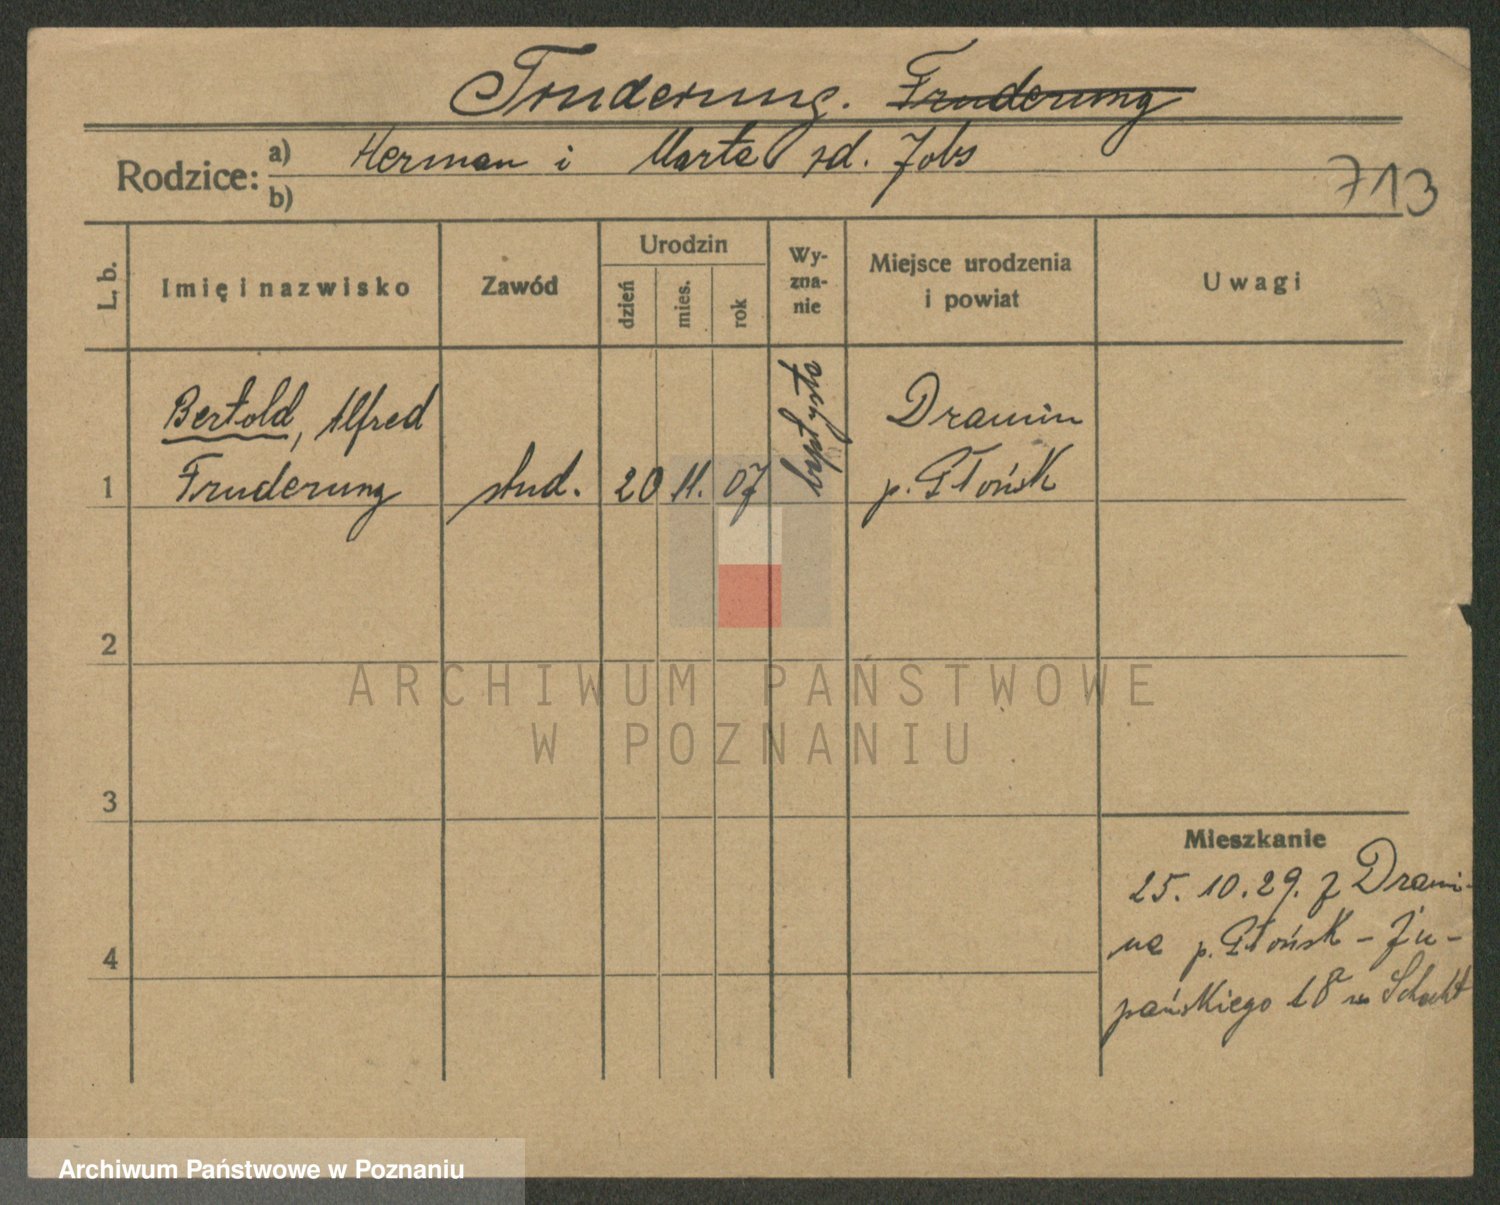 Truderung. Fruderung
Rodzice: a) Herman i Marta zd. Jobs
b)
713
L. b.
Imię i nazwisko
Zawód
Urodzin
dzień
mies.
rok
Wy-
zna-
nie
Miejsce urodzenia
i powiat
Uwagi
Bertold, Alfred
1 Fruderung
stud.
20 11. 07
Dramin
p. Płońsk
2
3
4
Mieszkanie
25. 10. 29. z Drami-
na p. Płońsk - Żu-
pańskiego 18
ARCHIWUM PAŃSTWOWE
W POZNANIU
Archiwum Państwowe w Poznaniu